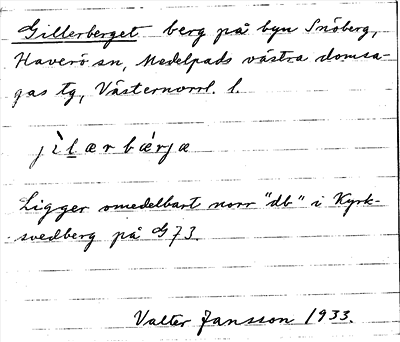 Gillerberget berg på byn Snöberg,
Haverö sn, Medelpads västra domsa-
gas tg, Västernorrl. l.
jìlærbǽrjæ
Ligger omedelbart norr "db" i Kyrk-
svedberg på G73.
Valter Jansson 1933.